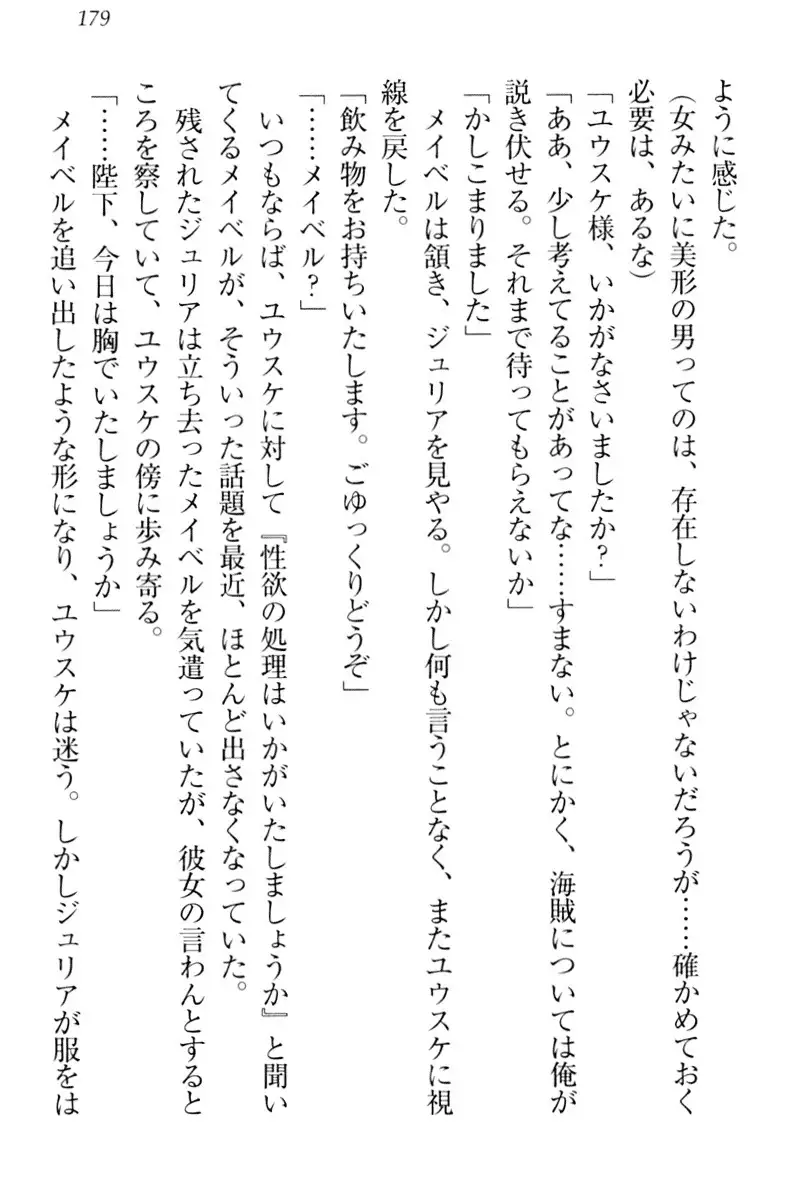 179
ように感じた。
（女みたいに美形の男ってのは、存在しないわけじゃないだろうが……確かめておく
必要は、あるな）
「ユウスケ様、いかがなさいましたか？」
「ああ、少し考えてることがあってな……すまない。とにかく、海賊については俺が
説き伏せる。それまで待ってもらえないか」
「かしこまりました」
メイベルは頷き、ジュリアを見やる。しかし何も言うことなく、またユウスケに視
線を戻した。
「飲み物をお持ちいたします。ごゆっくりどうぞ」
「……メイベル？」
いつもならば、ユウスケに対して『性欲の処理はいかがいたしましょうか』と聞い
てくるメイベルが、そういった話題を最近、ほとんど出さなくなっていた。
残されたジュリアは立ち去ったメイベルを気遣っていたが、彼女の言わんとすると
ころを察していて、ユウスケの傍に歩み寄る。
「……陛下、今日は胸でいたしましょうか」
メイベルを追い出したような形になり、ユウスケは迷う。しかしジュリアが服をは